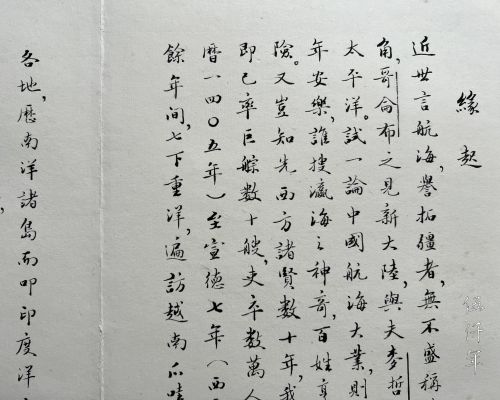 緣起
近世言航海，譽拓疆者，無不盛稱
角，哥侖布之見新大陸，與夫麥哲
太平洋。試一論中國航海大業，則
年安樂，誰搜瀛海之神奇，百姓
險。又豈知先西方諸賢數十年，我
即已率巨艅數十艘吏卒數萬人
曆一四〇五年）至宣德七年（西
餘年间，七下重洋，遍訪越南爪哇
各地，歷南洋諸島而叩印度洋